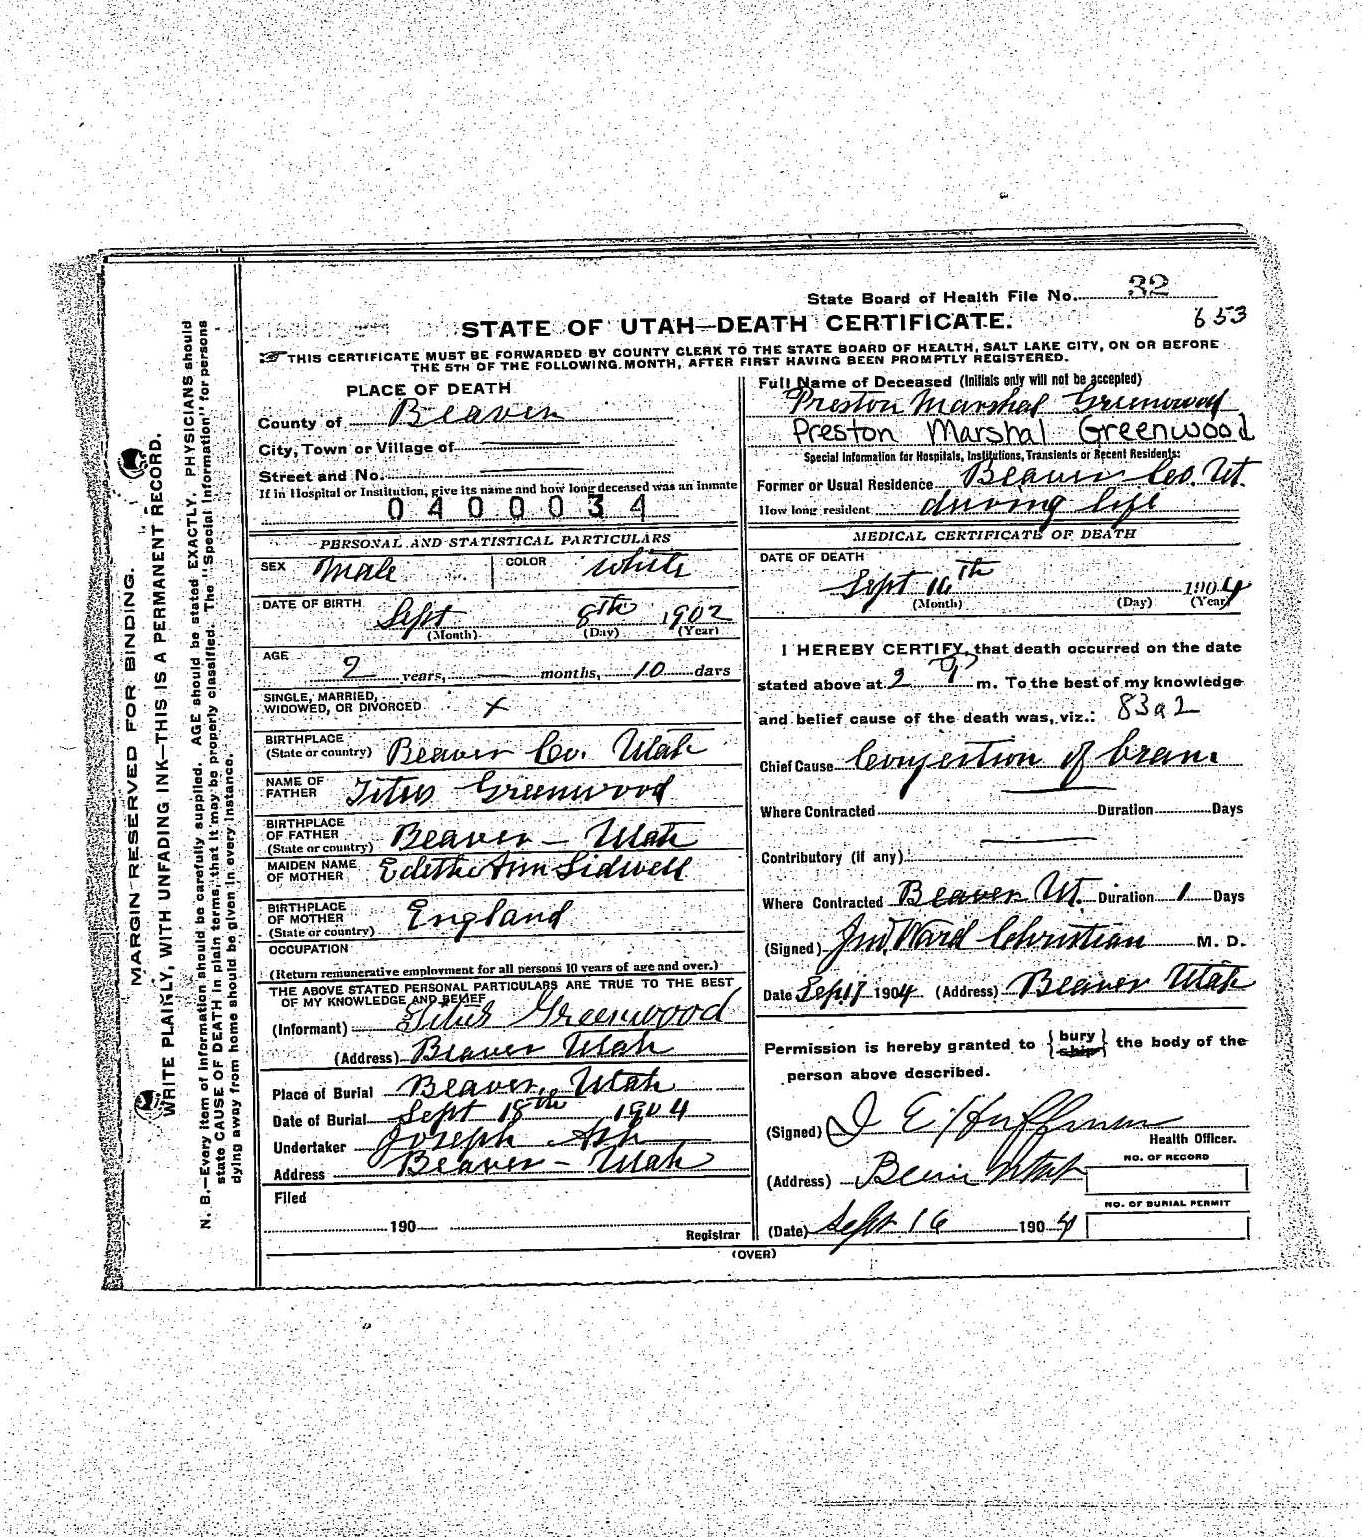 State Board of Health File No. 32
653
STATE OF UTAH—DEATH CERTIFICATE.
THIS CERTIFICATE MUST BE FORWARDED BY COUNTY CLERK TO THE STATE BOARD OF HEALTH, SALT LAKE CITY, ON OR BEFORE
THE 5TH OF THE FOLLOWING MONTH, AFTER FIRST HAVING BEEN PROMPTLY REGISTERED.
MARGIN RESERVED FOR BINDING.
WRITE PLAINLY, WITH UNFADING INK—THIS IS A PERMANENT RECORD.
N. B.—Every item of information should be carefully supplied. AGE should be stated EXACTLY. PHYSICIANS should
state CAUSE OF DEATH in plain terms, that it may be properly classified. The "Special Information" for persons
dying away from home should be given in every instance.
PLACE OF DEATH
County of Beaver
City, Town or Village of
Street and No.
If in Hospital or Institution, give its name and how long deceased was an inmate
0400034
PERSONAL AND STATISTICAL PARTICULARS
SEX Male COLOR White
DATE OF BIRTH Sept 8th 1902
(Month) (Day) (Year)
AGE 2 years, — months, 10 days
SINGLE, MARRIED,
WIDOWED, OR DIVORCED x
BIRTHPLACE
(State or country) Beaver Co. Utah
NAME OF
FATHER Titus Greenwood
BIRTHPLACE
OF FATHER
(State or country) Beaver — Utah
MAIDEN NAME
OF MOTHER Edithe Ann Sidwell
BIRTHPLACE
OF MOTHER
(State or country) England
OCCUPATION
(Return remunerative employment for all persons 10 years of age and over.)
THE ABOVE STATED PERSONAL PARTICULARS ARE TRUE TO THE BEST
OF MY KNOWLEDGE AND BELIEF
(Informant) Titus Greenwood
(Address) Beaver Utah
Place of Burial Beaver, Utah
Date of Burial Sept 18th 1904
Undertaker Joseph Ash
Address Beaver — Utah
Filed
190
Registrar
Full Name of Deceased (Initials only will not be accepted)
Preston Marshal Greenwood
Preston Marshal Greenwood
Special Information for Hospitals, Institutions, Transients or Recent Residents:
Former or Usual Residence Beaver Co. Ut.
How long resident during life
MEDICAL CERTIFICATE OF DEATH
DATE OF DEATH
Sept 16th 1904
(Month) (Day) (Year)
I HEREBY CERTIFY, that death occurred on the date
stated above at 2 m. To the best of my knowledge
and belief cause of the death was, viz.: 83a2
Chief Cause Congestion of brain
Where Contracted Duration Days
Contributory (if any)
Where Contracted Beaver Ut. Duration 1 Days
(Signed) Jno. Ward Christian M. D.
Date Sep 17 1904 (Address) Beaver Utah
Permission is hereby granted to { bury
ship } the body of the
person above described.
(Signed) J E Huffman
Health Officer.
NO. OF RECORD
(Address) Utah
NO. OF BURIAL PERMIT
(Date) Sept 16 1904
(OVER)